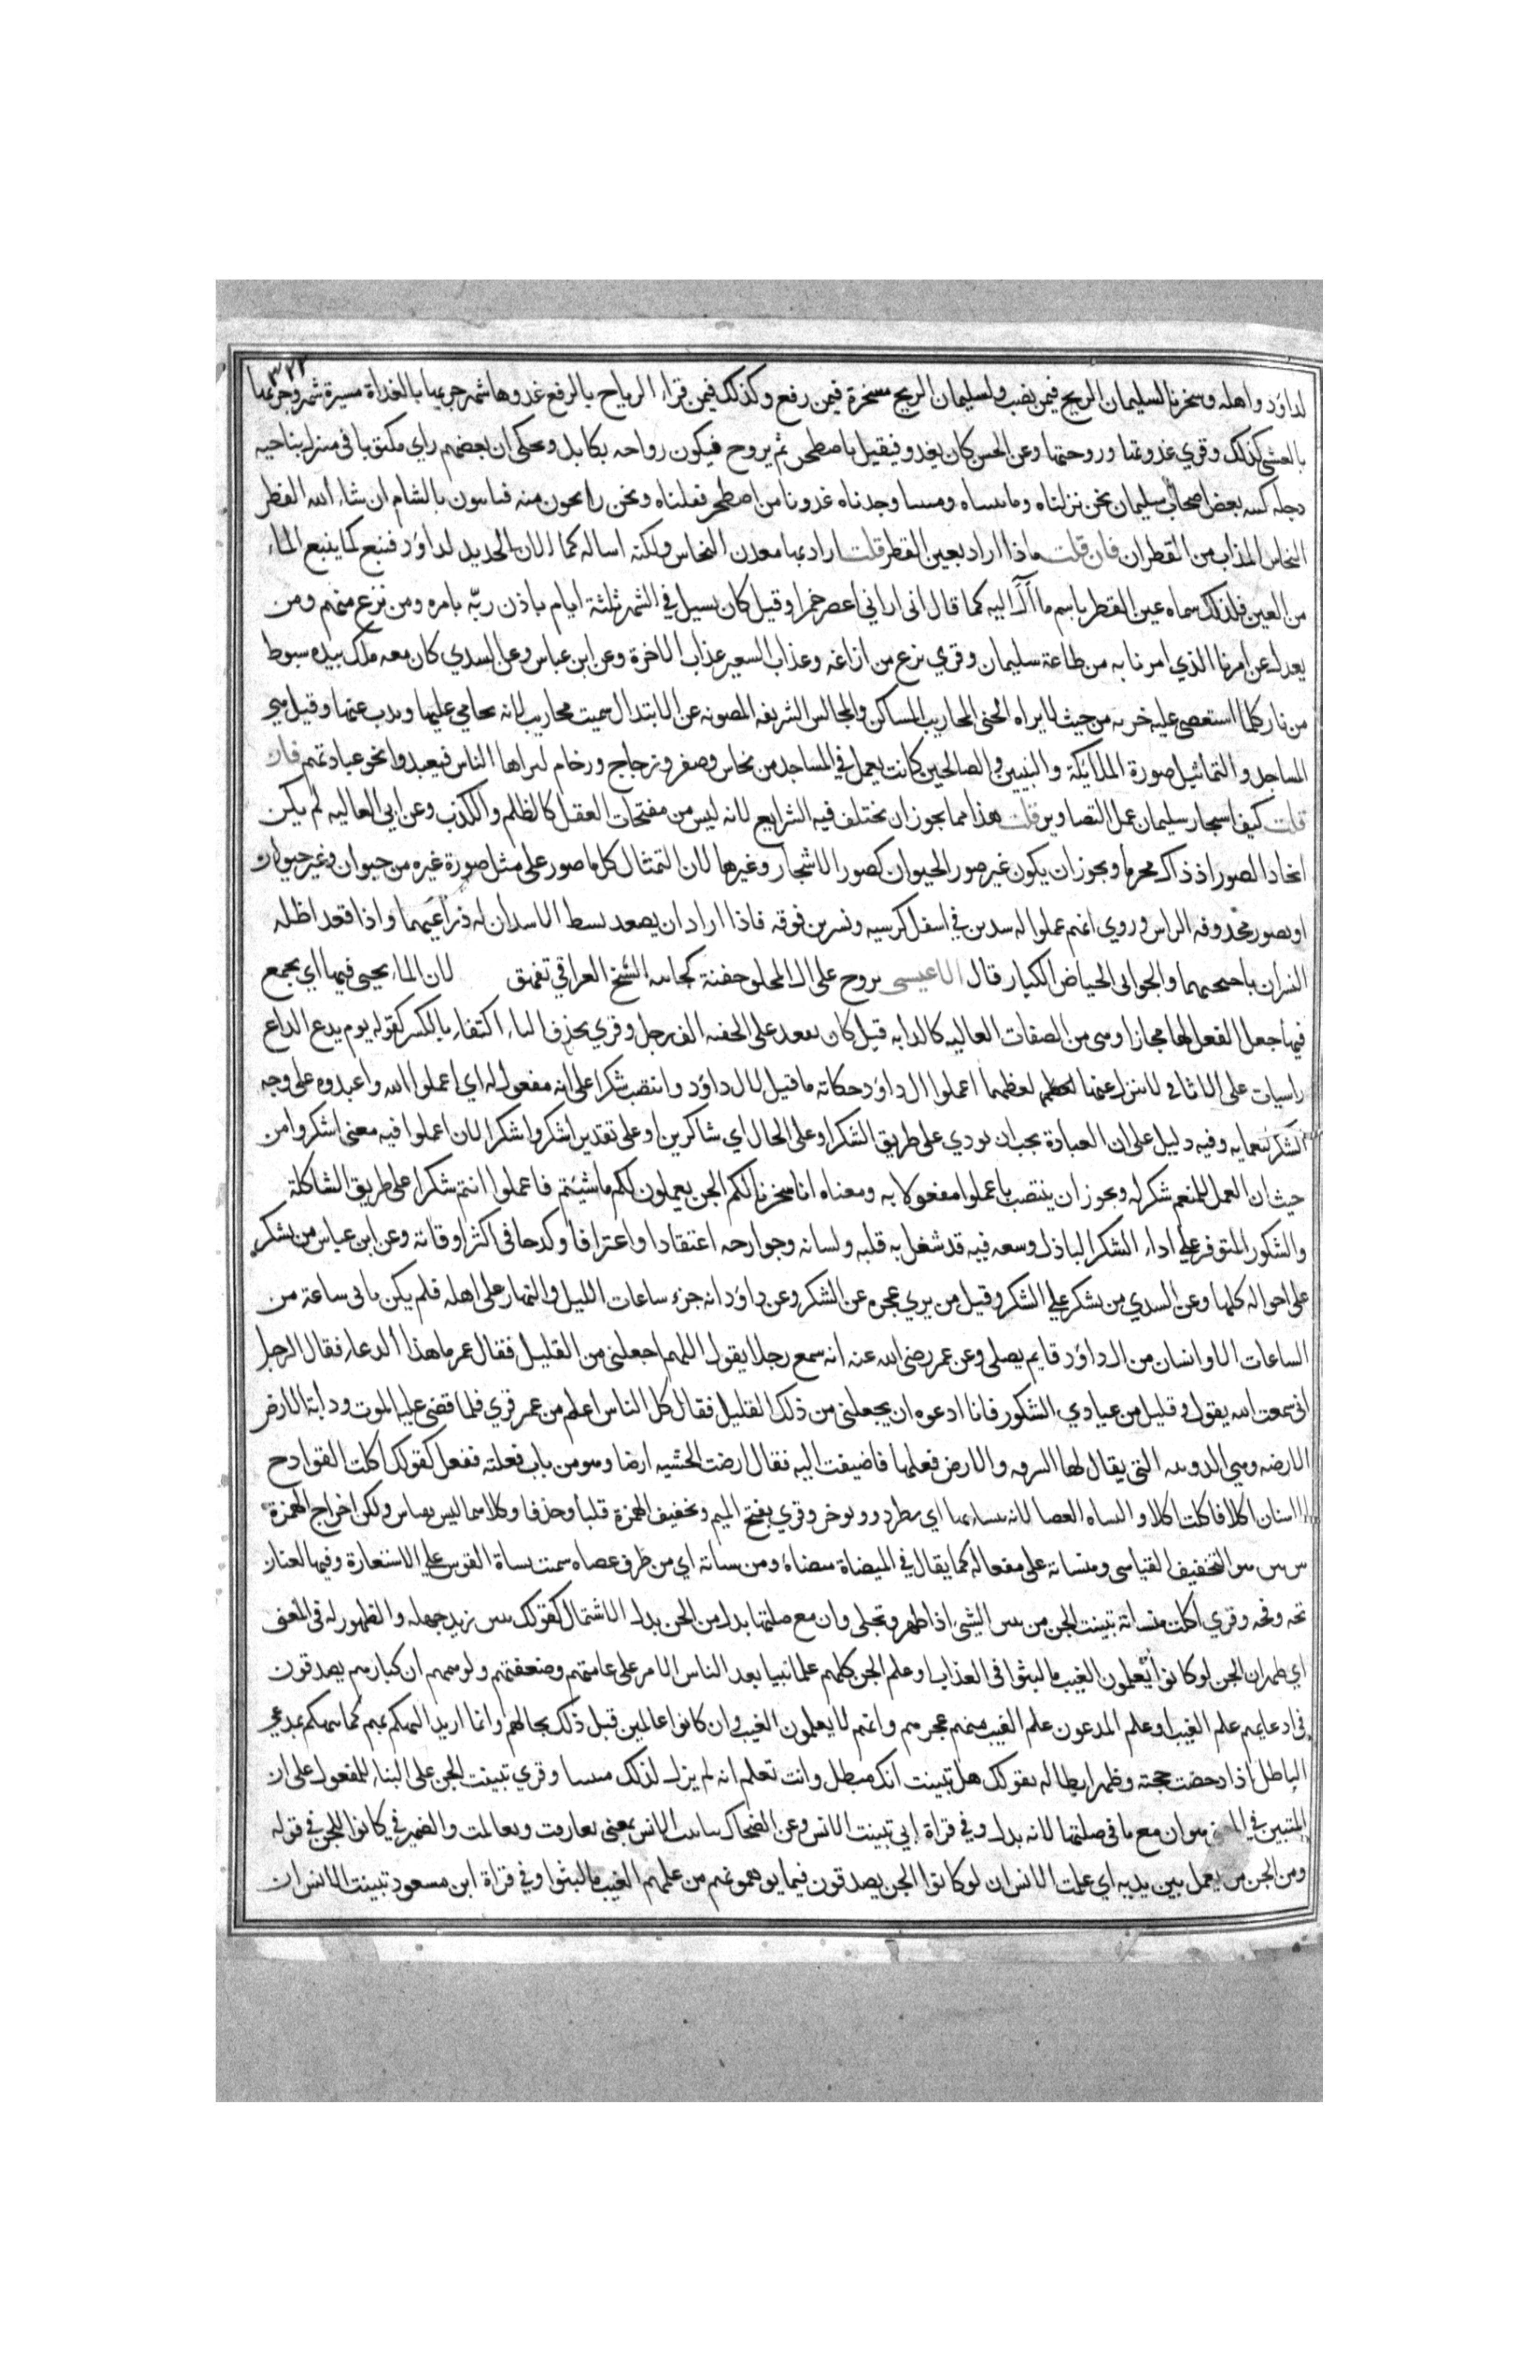 ٣٢٢
لداؤد واهله وسخرنا لسليمان الريح فيمن نصب ولسليمان الريح مسخرة فيمن رفع وكذلك فيمن قراء الرياح بالرفع غدوها شهر جريها بالغداة مسيرة شهر وجريها
بالعشي كذلك وقري غدوتها وروحتها وعن الحسن كان يغدو فيقيل باصطخر ثم يروح فيكون رواحه بكابل ويحكى ان بعضهم راي مكتوبا في منزل بناحيه
دجله كتبه بعض اصحاب سليمان نحن نزلناه وما بنيناه ومبنيا وجدناه غدونا من اصطخر فقلناه ونحن رايحون منه فبايتون بالشام ان شاء الله القطر
النحاس المذاب من القطران فان قلت ماذا اراد بعين القطر قلت اراد بها معدن النحاس ولكنه اساله كما الان الحديد لداؤد فنبع كما ينبع الماء
من العين فلذلك سماه عين القطر باسم ما آل اليه كما قال اني اراني اعصر خمرا وقيل كان يسيل في الشهر ثلثة ايام باذن ربّه بامره ومن يزغ منهم ومن
يعدل عن امرنا الذي امرنا به من طاعة سليمان وقري يزغ من ازاغه وعذاب السعير عذاب الاخرة وعن ابن عباس وعن السدي كان معه ملك بيده سوط
من نار كلما استعصى عليه ضربه من حيث لا يراه الجنى المحاريب المساكن والمجالس الشريفه المصونه عن الابتذال سميت محاريب لانه يحامي عليها ويذب عنها وقيل هي
المساجد والتماثيل صورة الملائكة والنبيين والصالحين كانت يعمل في المساجد من نحاس وصفر وزجاج ورخام ليراها الناس فيعبدوا نحو عبادتهم فان
قلت كيف استجار سليمان عمل التصاوير قلت هذا مما يجوز ان تختلف فيه الشرايع لانه ليس من مقبحات العقل كالظلم والكذب وعن ابي العاليه لم يكن
اتخاذ الصور اذ ذاك محرما ويجوز ان يكون غير صور الحيوان كصور الاشجار وغيرها لان التمثال كل ما صور على مثل صورة غيره من حيوان وغير حيوان
او بصور محذوفه الراس وروي انهم عملوا له اسدين في اسفل كرسيه ونسرين فوقه فاذا اراد ان يصعد بسط الاسدان له ذراعيهما واذا قعد اظله
النسران باجنحتهما والجوابي الحياض الكبار قال الاعيسى تروح على ال المحلق جفنة كجابيه الشيخ العراقي تفهق لان الماء يجبى فيها اي يجمع
فيها جعل الفعل لها مجازا وهي من الصفات الغالبه كالدابه قيل كان يقعد على الجفنه الف رجل وقري بحذف الياء اكتفاء بالكسر كقوله يوم يدع الداع
راسيات على الاثافي لا تنزل عنها لعظمها اعملوا ال داؤد حكاية ما قيل لال داؤد وانتصب شكرا على انه مفعول له اي اعملوا الله واعبدوه على وجه
الشكر لنعمايه وفيه دليل على ان العبادة يجب ان تودي على طريق الشكر او على الحال اي شاكرين او على تقدير اشكروا شكرا لان اعملوا فيه معنى اشكروا من
حيث ان العمل للمنعم شكر له ويجوز ان ينتصب باعملوا مفعولا به ومعناه انا سخرنا لكم الجن يعملون لكم ما شئتم فاعملوا انتم شكرا على طريق المشاكلة
والشكور المتوفر على اداء الشكر الباذل وسعه فيه قد شغل به قلبه ولسانه وجوارحه اعتقادا واعترافا وكدحا في اكثر اوقاته وعن ابن عباس من يشكر
على احواله كلها وعن السدي من يشكر على الشكر وقيل من يري عجزه عن الشكر وعن داؤد انه جزء ساعات الليل والنهار على اهله فلم يكن ياتى ساعة من
الساعات الا وانسان من ال داؤد قايم يصلى وعن عمر رضى الله عنه انه سمع رجلا يقول اللهم اجعلنى من القليل فقال عمر ما هذا الدعاء فقال الرجل
انى سمعت الله يقول وقليل من عبادي الشكور فانا ادعوه ان يجعلنى من ذلك القليل فقال كل الناس اعلم من عمر قري فلما قضى عليه الموت ودابة الارض
الارضه وهي الدويبه التى يقال لها السرفه والارض فعلها فاضيفت اليه فقال ارضت الخشبه ارضا وهو من باب فعلته ففعل كقولك اكلت القوادح
الاسنان اكلا فاكلت اكلا والمنساه العصا لانه ينساء بها اي يطرد ويوخر وقري بفتح الميم وتخفيف الهمزة قلبا وحذفا وكلاهما ليس بقياس ولكن اخراج الهمزة
بين بين هو التخفيف القياسى ومنساته على مفعاله كما يقال في الميضاة ميضاءة ومن ساته اي من طرف عصاه سميت بساة القوس على الاستعارة وفيها لغتان
قحه وقحه وقري اكلت منساته تبينت الجن من تبين الشيئ اذا ظهر وتجلى وان مع صلتها بدل من الجن بدل الاشتمال كقولك تبين زيد جهله والظهور له في المعنى
اي ظهر ان الجن لو كانوا يعلمون الغيب ما لبثوا في العذاب او علم الجن كلهم علما بينا بعد التباس الامر على عامتهم وضعفتهم وتوهمهم ان كبارهم يصدقون
في ادعايهم علم الغيب او علم المدعون علم الغيب منهم عجزهم وانهم لا يعلمون الغيب وان كانوا عالمين قبل ذلك بحالهم وانما اريد التهكم بهم كما تتهكم بمدعى
الباطل اذا دحضت حجته وظهر ابطاله بقولك هل تبينت انك مبطل وانت تعلم انه لم يزل لذلك متبينا وقري تبينت الجن على البناء للمفعول على ان
المتبين في المعنى هو ان مع ما في صلتها لانه بدل وفي قراة ابي تبينت الانس وعن الضحاك تباينت الانس بمعنى تعارفت وتعالمت والضمير في كانوا للجن في قوله
ومن الجن من يعمل بين يديه اي علمت الانس ان لو كانوا الجن يصدقون فيما يوهمونهم من علمهم الغيب ما لبثوا وفي قراة ابن مسعود تبينت الانس ان